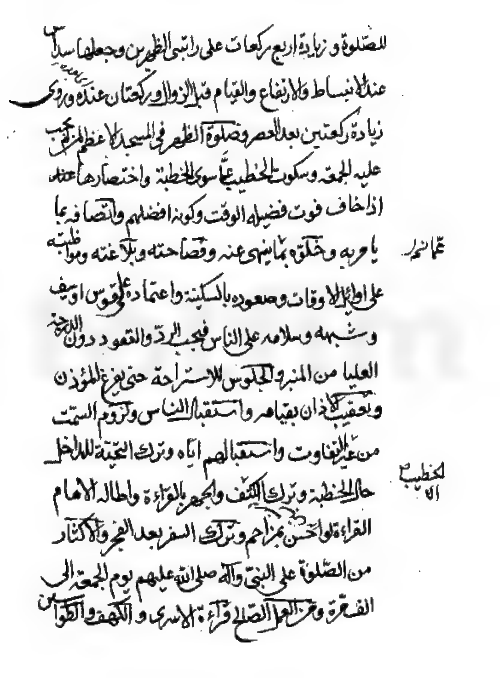 للصّلوة و زيادة اربع ركعات على راتبتى الظهرين وجعلها سداس
عند الانبساط والارتفاع والقيام قبل الزوال و ركعتان عنده وروى
زيادة ركعتين بعد العصر وصلوة الظهر فى المسجد الاعظم لمن لم يجب
عليه الجمعة وسكوت الخطيب عمّا سوى الخطبة واختصارها عند
اذا خاف فوت فضيلة الوقت وكونه افضلهم واتصافه بما
يامر به و خلوّه عما ينهى عنه وفصاحته وبلاغته ومواظبته
على اوائل الاوقات وصعوده بالسكينة واعتماده على قوس او سيف
و شبهه وسلامه على الناس فيجب الردّ والقعود دون الدرجة
العليا من المنبر والجلوس للاستراحة حتى يفرغ المؤذن
وتعقيب الاذان بقيامه واستقبال الناس ولزوم السمت
من غير التفاوت واستقبالهم اياه وترك التحيّة للداخل
حال الخطبة وترك الكتف والجهر بالقراءة واطالة الامام
القراءة لو احسّ بمزاحم وترك السفر بعد الفجر والاكثار
من الصّلوة على النبىّ وآله صلى الله عليهم يوم الجمعة الى
الف مرّة ومن العمل الصّالح قراءة الاسرى و الكهف والطواسين
الخطيب